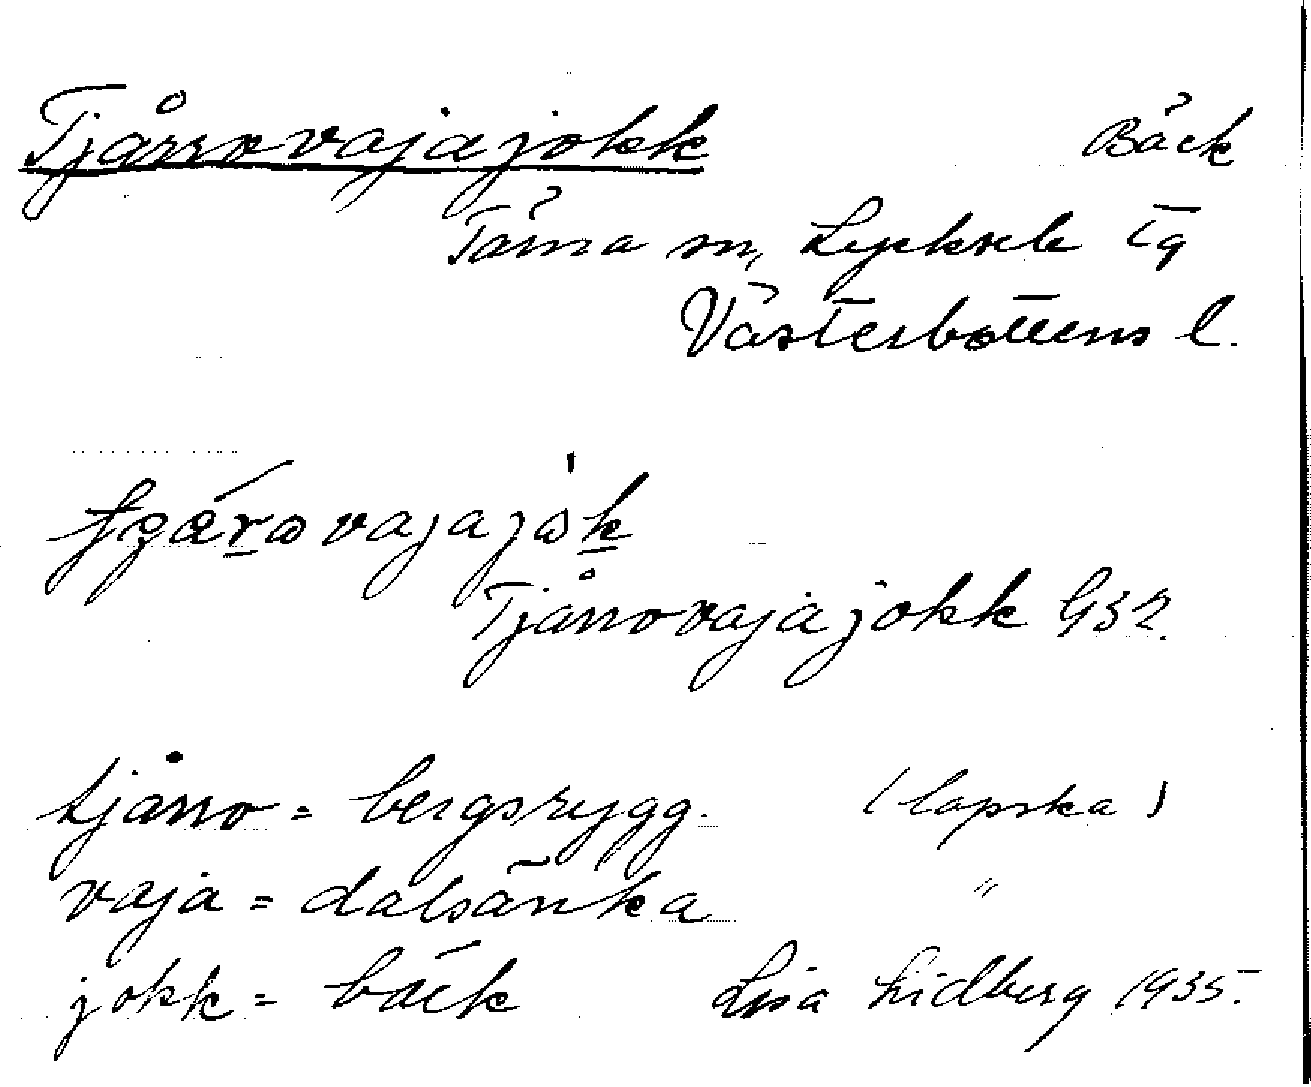 Tjårrovajajokk Bäck
Tärna sn, Lycksele tg
Västerbottens l.
Tjårrovajajokk G32.
tjårro = bergsrygg. (lapska)
vaja = dalsänka "
jokk = bäck Lisa Lidberg 1935.